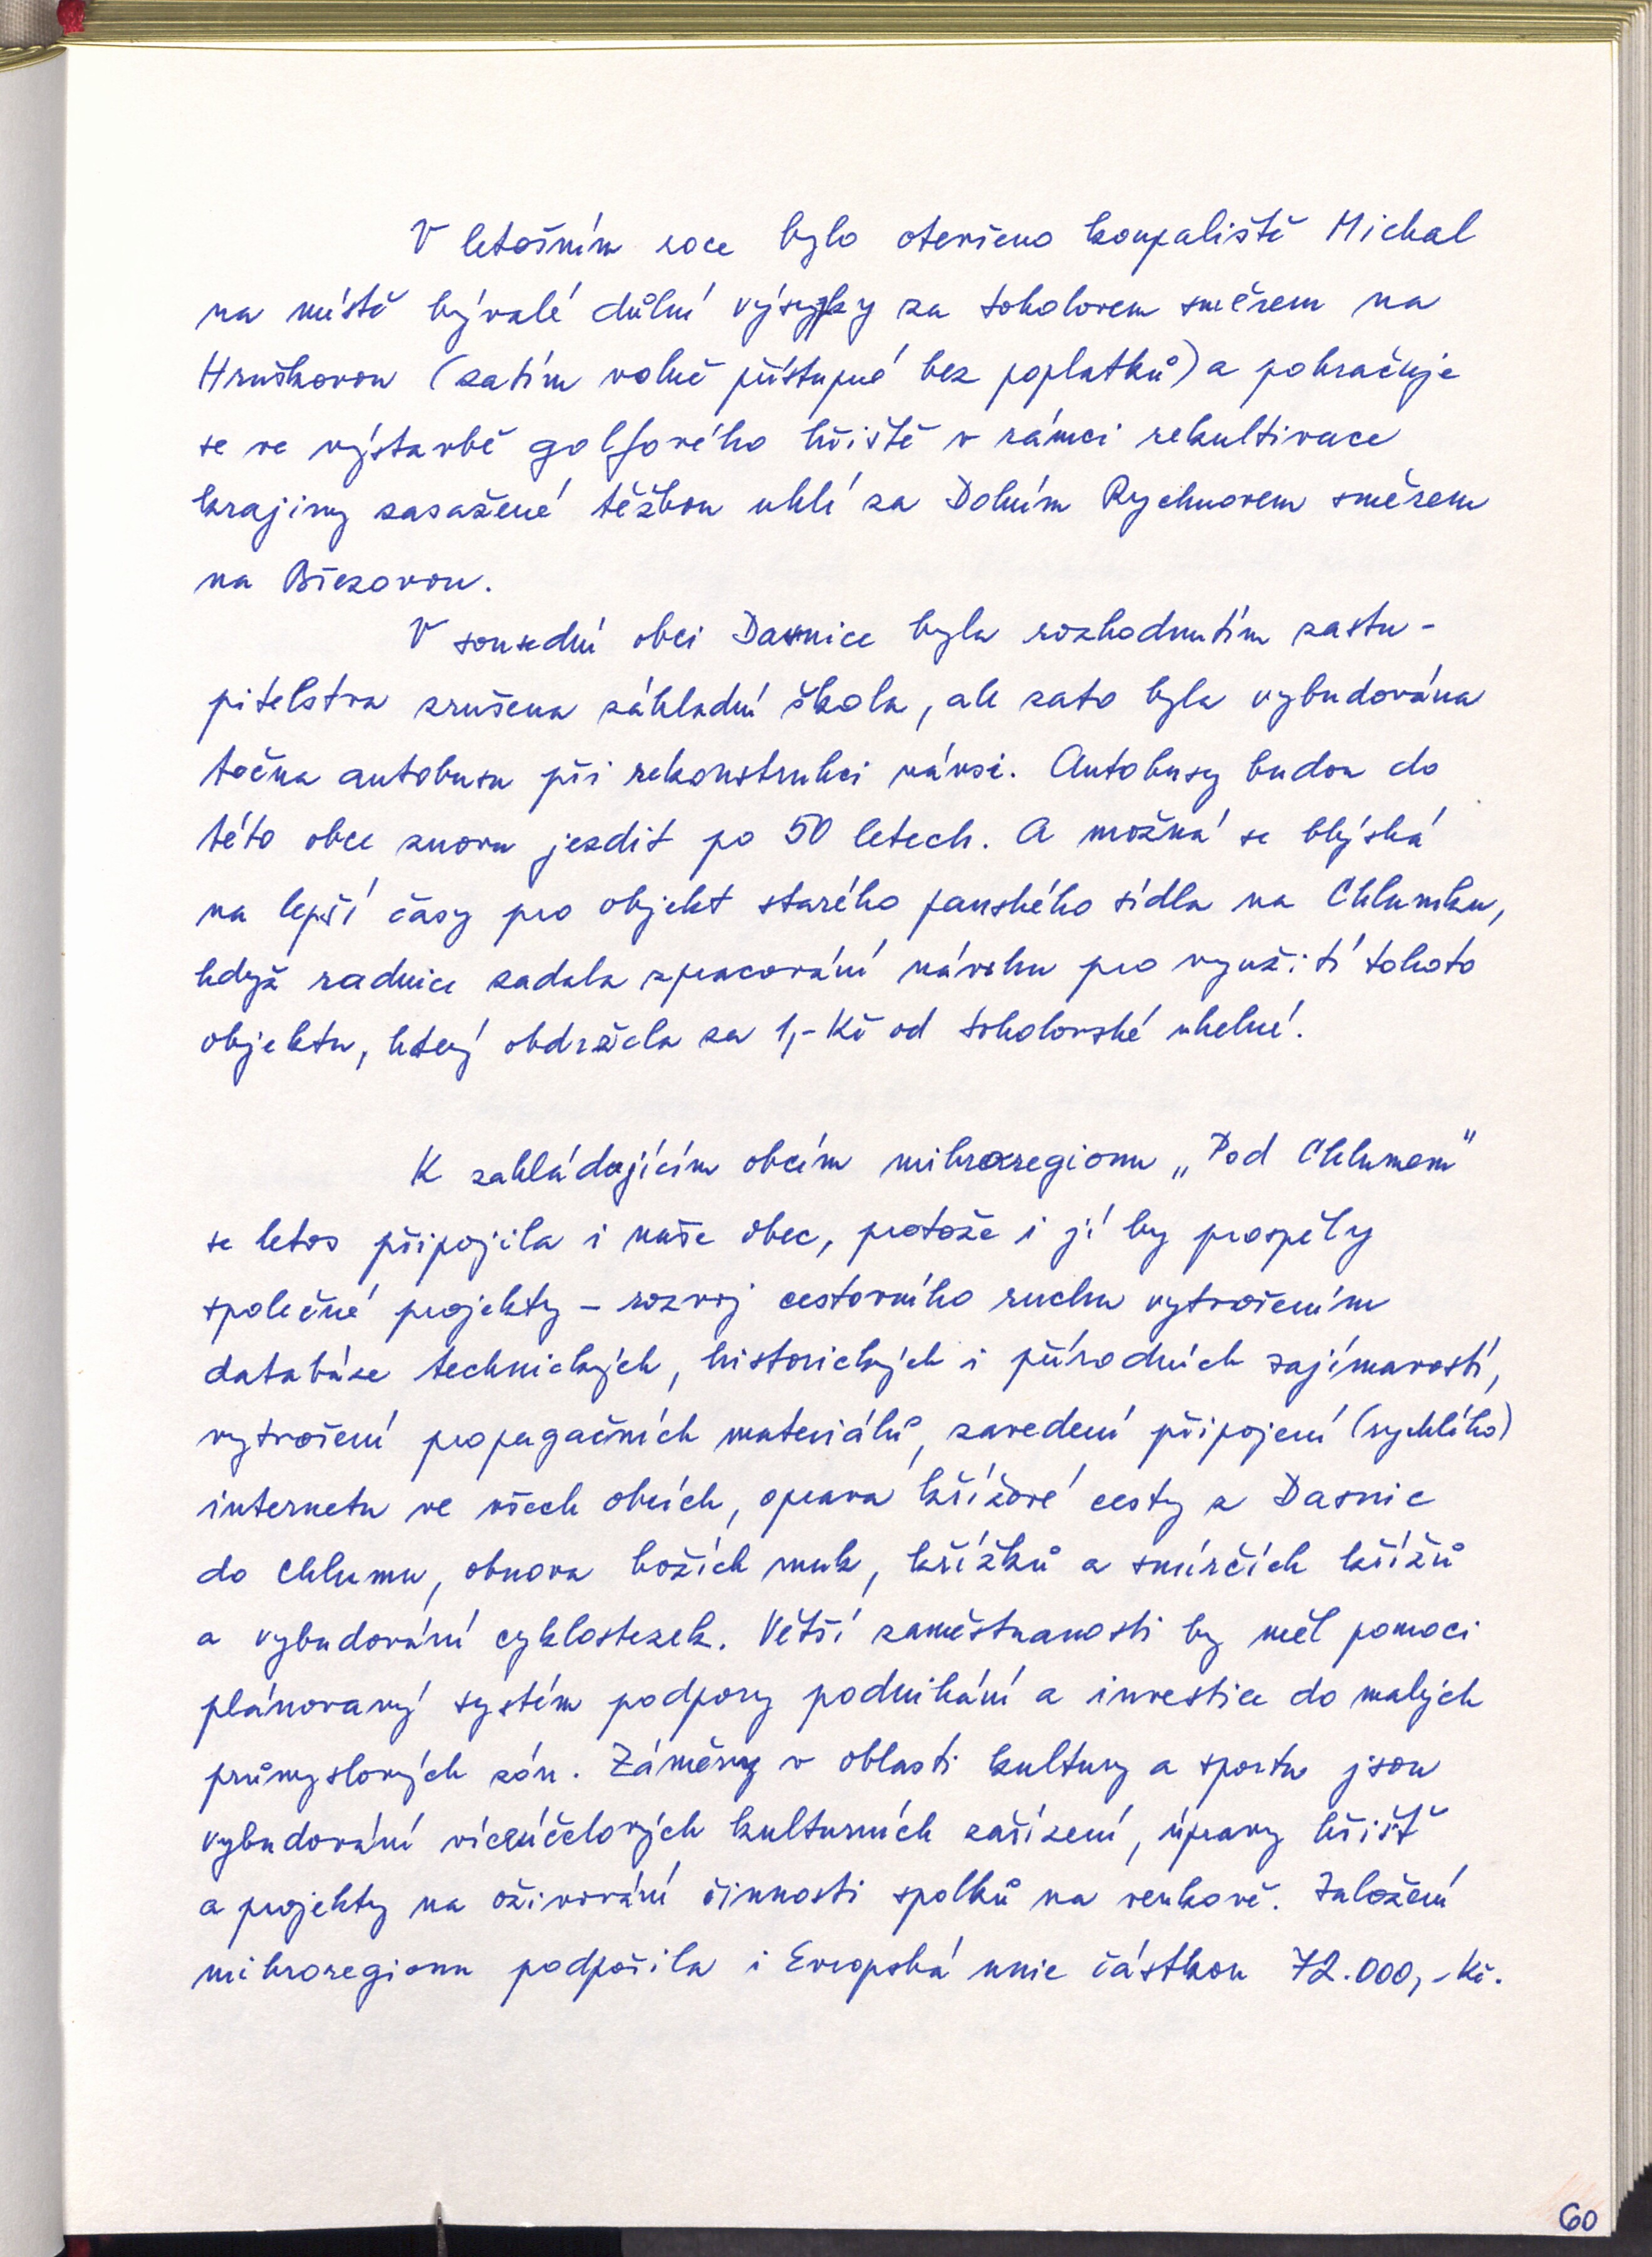 V letošním roce bylo otevřeno koupaliště Michal
na místě bývalé důlní výsypky za Sokolovem směrem na
Hruškovou (zatím volně přístupné bez poplatků) a pokračuje
se ve výstavbě golfového hřiště v rámci rekultivace
krajiny zasažené těžbou uhlí za Dolním Rychnovem směrem
na Březovou.
V sousední obci Dasnice byla rozhodnutím zastu-
pitelstva zrušena základní škola, ale zato byla vybudována
točna autobusu při rekonstrukci návsi. Autobusy budou do
této obce znovu jezdit po 50 letech. A možná se blýská
na lepší časy pro objekt starého panského sídla na Chlumku,
když radnice zadala zpracování návrhu pro využití tohoto
objektu, který obdržela za 1,- Kč od Sokolovské uhelné.
K zakládajícím obcím mikroregionu „Pod Chlumem"
se letos připojila i naše obec, protože i jí by prospěly
společné projekty – rozvoj cestovního ruchu vytvořením
databáze technických, historických i přírodních zajímavostí,
vytvoření propagačních materiálů, zavedení připojení (rychlého)
internetu ve všech obcích, oprava křížové cesty z Dasnic
do Chlumu, obnova božích muk, křížků a smírčích křížů
a vybudování cyklostezek. Větší zaměstnanosti by měl pomoci
plánovaný systém podpory podnikání a investice do malých
průmyslových zón. Záměry v oblasti kultury a sportu jsou
vybudování víceúčelových kulturních zařízení, úpravy hřišť
a projekty na oživování činnosti spolků na venkově. Založení
mikroregionu podpořila i Evropská unie částkou 72.000,- Kč.
60